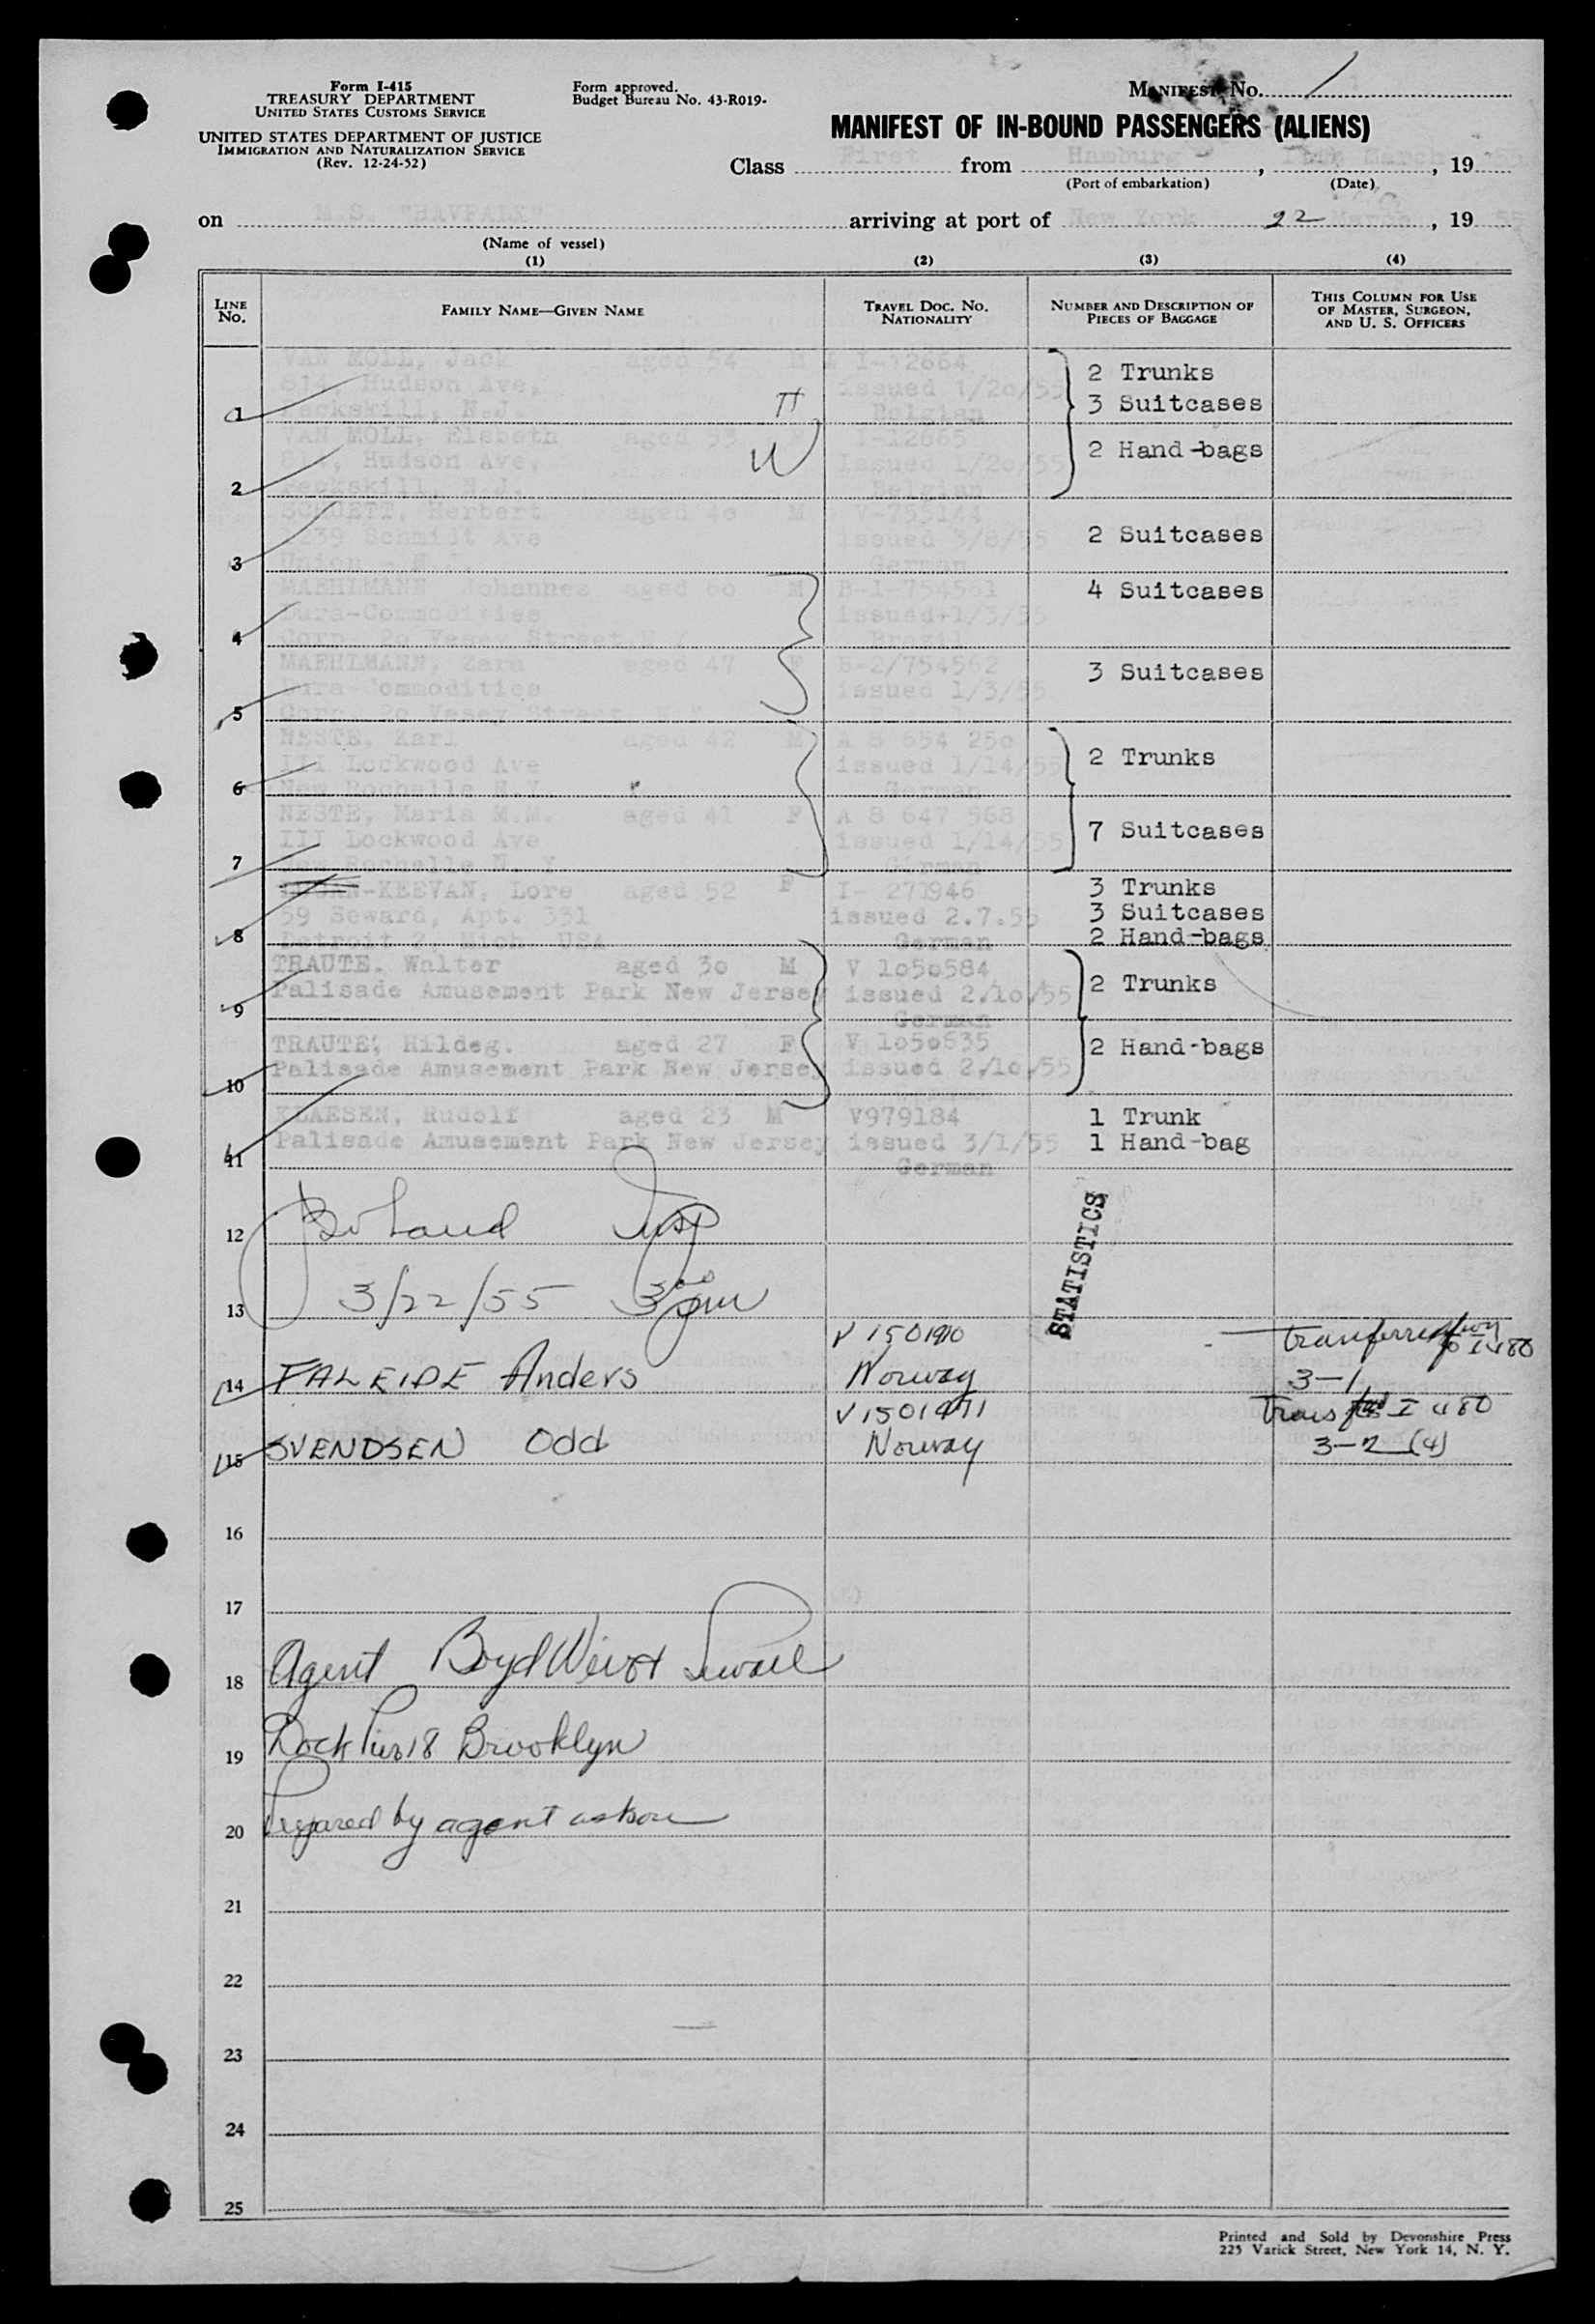 Form I-415
TREASURY DEPARTMENT
UNITED STATES CUSTOMS SERVICE
UNITED STATES DEPARTMENT OF JUSTICE
IMMIGRATION AND NATURALIZATION SERVICE
(Rev. 12-24-52)
Form approved.
Budget Bureau No. 43-R019-
MANIFEST No. 1
MANIFEST OF IN-BOUND PASSENGERS (ALIENS)
Class First from Hamburg, March, 19 55
(Port of embarkation) (Date)
on M.S. arriving at port of New York 22 March, 19 55
(Name of vessel)
(1) (2) (3) (4)
LINE No. FAMILY NAME—GIVEN NAME TRAVEL DOC. No. NATIONALITY NUMBER AND DESCRIPTION OF PIECES OF BAGGAGE THIS COLUMN FOR USE OF MASTER, SURGEON, AND U. S. OFFICERS
VAN MOLL, Jack aged 54 M I-12664 2 Trunks
814, Hudson Ave, issued 1/20/55 3 Suitcases
1 Peckskill, N.J. H Belgian
VAN MOLL, Elsbeth aged 53 F I-12665 2 Hand-bags
814, Hudson Ave, W issued 1/20/55
2 Peckskill, N.J. Belgian
Herbert aged 40 M V-755144 2 Suitcases
Schmidt Ave issued 3/8/55
3 Union - N.J. German
MAEHLMANN, Johannes aged 60 M B-1-754561 4 Suitcases
Dura-Commodities issued 1/3/55
4 Corp. 20 Vesey Street Brazil
MAEHLMANN, Zara aged 47 F B-2/754562 3 Suitcases
Dura-Commodities issued 1/3/55
5 Corp. 20 Vesey Street
NESTE, Karl aged 42 M A 8 654 250 2 Trunks
III Lockwood Ave issued 1/14/55
6 New Rochelle N.Y. German
NESTE, Maria M.M. aged 41 F A 8 647 568 7 Suitcases
III Lockwood Ave issued 1/14/55
7 New Rochelle N. Y. German
-KEEVAN, Lore aged 52 F I- 271946 3 Trunks
59 Seward, Apt. 331 issued 2.7.55 3 Suitcases
8 Detroit 2, Mich. USA German 2 Hand-bags
TRAUTE. Walter aged 30 M V 1050584 2 Trunks
9 Palisade Amusement Park New Jersey issued 2/10/55
German
TRAUTE, Hildeg. aged 27 F V 1050635 2 Hand-bags
10 Palisade Amusement Park New Jersey issued 2/10/55
KLAESEN, Rudolf aged 23 M V979184 1 Trunk
11 Palisade Amusement Park New Jersey issued 3/1/55 1 Hand-bag
German
12 Insp
STATISTICS
13 3/22/55 3 00 pm
V 1501910 transferred to I 480
14 FALEIDE Anders Norway 3-1
V 1501911 I 480
15 SVENDSEN Odd Norway 3-2 (4)
16
17
18 Agent Boyd Weir &
19 Dock Pier 18 Brooklyn
20 Prepared by agent
21
22
23
24
25
Printed and Sold by Devonshire Press
225 Varick Street, New York 14, N. Y.